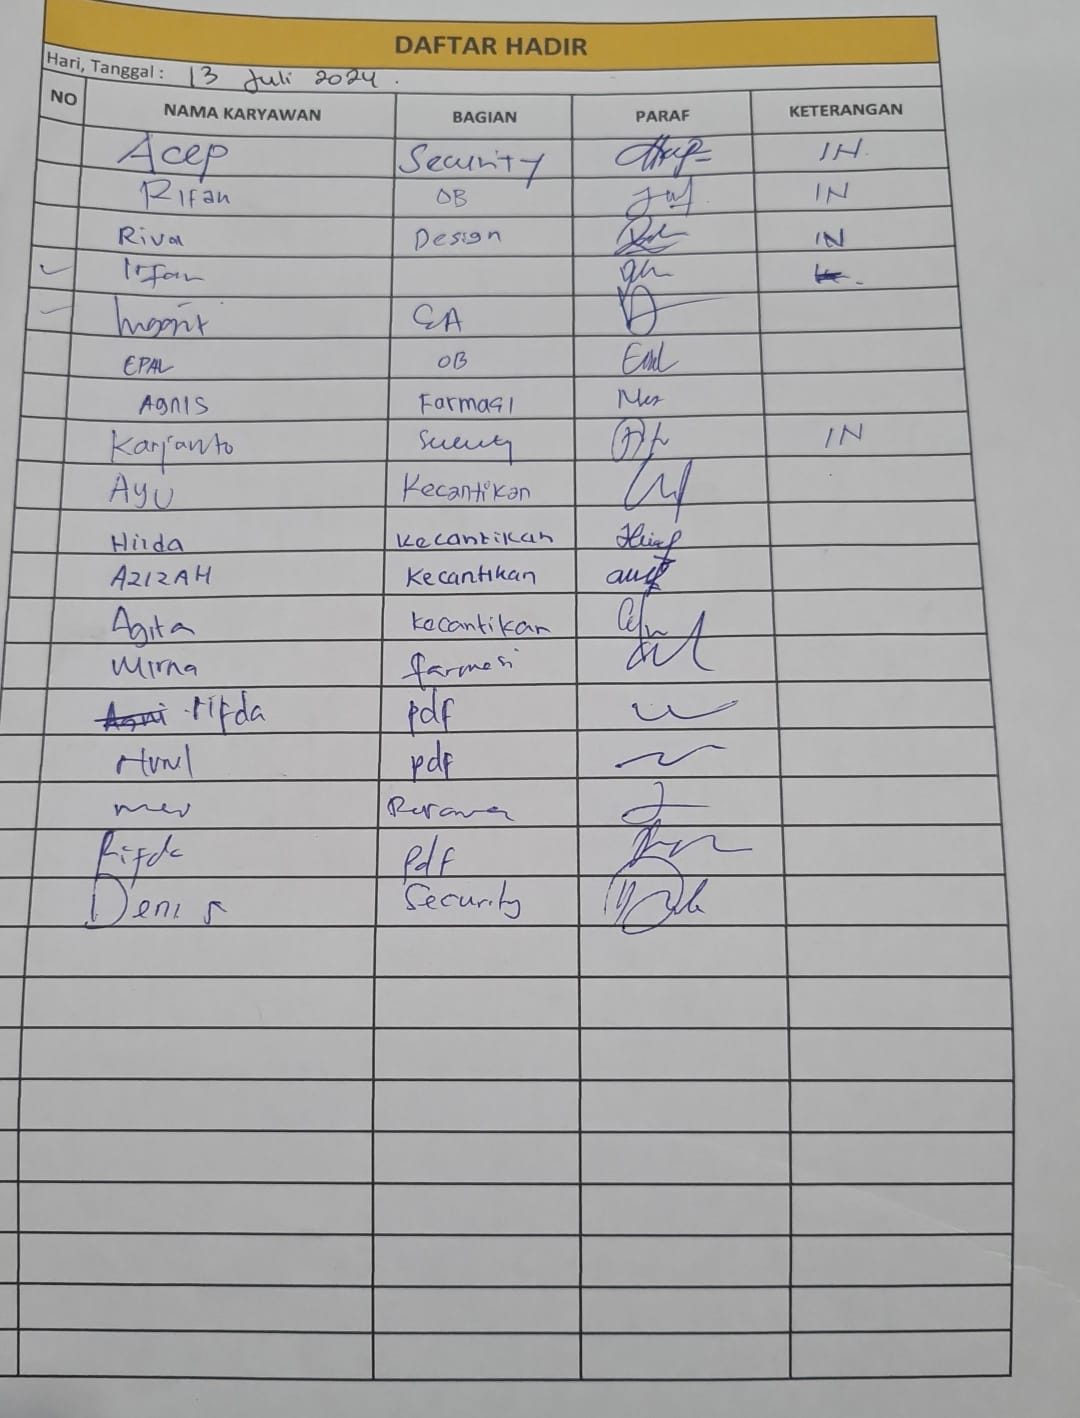 DAFTAR HADIR
Hari, Tanggal : 13 Juli 2024 .
NO NAMA KARYAWAN BAGIAN PARAF KETERANGAN
Acep Security IN
Rifan OB IN
Riva Design IN
Irfan
Inggrit
EPAL OB
AgNIS Farmasi
Karjanto IN
Ayu Kecantikan
Hilda Kecantikan
AZIZAH Kecantikan
Agita Kecantikan
Mirna farmasi
rifda pdf
pdf
Rifda Pdf
Deni Security